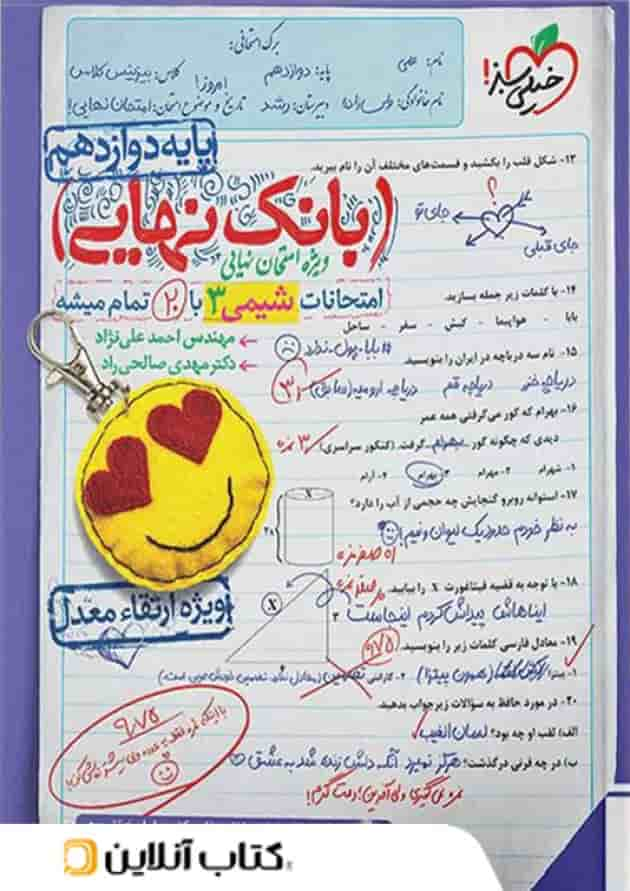 برگ امتحانی:
نام: علمی
پایه: دوازدهم
کلاس: بیزینس کلاس
نام خانوادگی:
دبیرستان: رشد
تاریخ و موضوع امتحان: امروز! امتحان نهایی!
خیلی سبز!
پایه دوازدهم
(بانک نهایی)
ویژه امتحان نهایی
امتحانات شیمی ۳ با ۲۰ تمام میشه
مهندس احمد علی‌نژاد
دکتر مهدی صالحی‌راد
ویژه ارتقاء معدل
۱۳- شکل قلب را بکشید و قسمت‌های مختلف آن را نام ببرید.
؟
جای تو
جای قبلی
۱۴- با کلمات زیر جمله بسازید.
بابا - هواپیما - کیش - سفر - ساحل
# بابا - پول - ندارد
۱۵- نام سه دریاچه در ایران را بنویسید.
دریاچه خزر دریاچه قم دریاچه ارومیه (سابق)
۱۶- بهرام که گور می‌گرفتی همه عمر
دیدی که چگونه گور بهرام گرفت. (کنکور سراسری)
۳ نمره
۱- شهرام ۲- مهرام ۳- بهرام ۴- آرام
۱۷- استوانه روبرو گنجایش چه حجمی از آب را دارد؟
X
به نظر خودم حدود یک لیوان و نیم!
۱۸- با توجه به قضیه فیثاغورث X را بیابید.
X
۳
ایناهاش پیداش کردم اینجاست
۱۹- معادل فارسی کلمات زیر را بنویسید.
۹/۷۵
۱- پیتزا (همون پیتزا) ۲- گارانتی
۲۰- در مورد حافظ به سؤالات زیر جواب بدهید.
الف) لقب او چه بود؟ لسان الغیب
ب) در چه قرنی درگذشت؟ هرگز نمیرد آنکه دلش زنده شد به عشق
نمره نمی‌گیری ولی آفرین! دمت گرم!
۹/۷۵
کتاب آنلاین